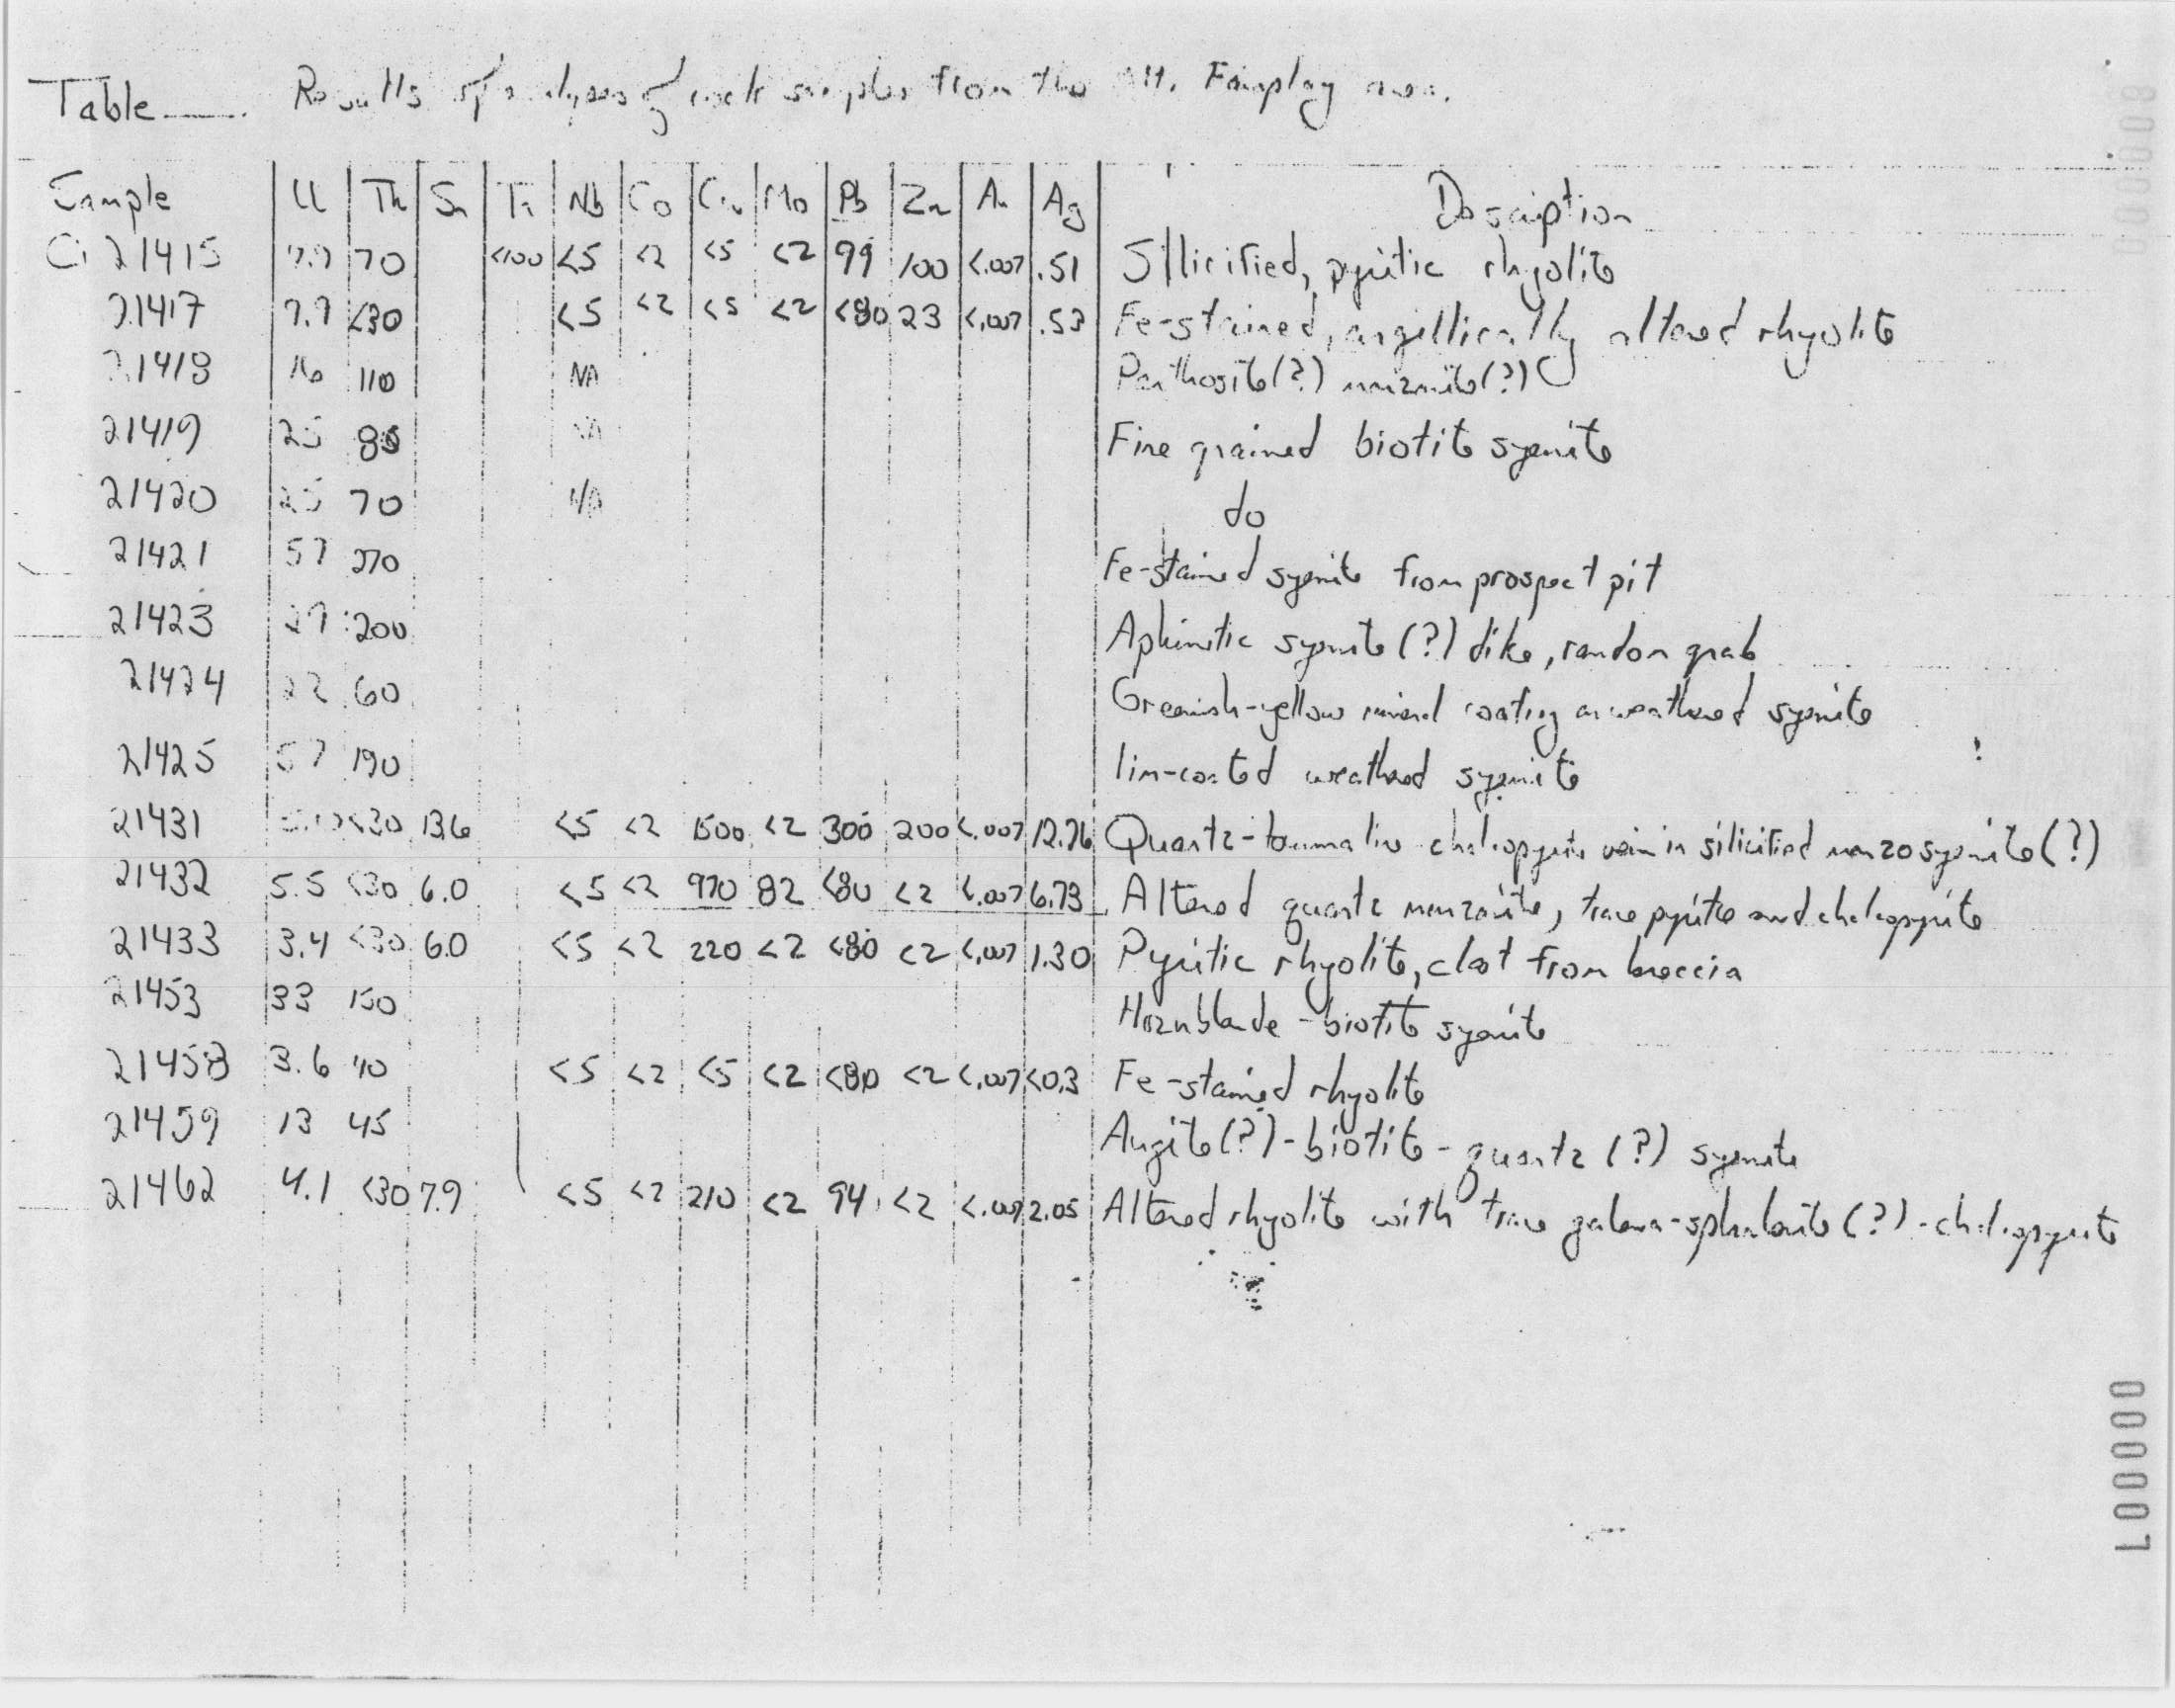 Table ___. Results of analyses of rock samples from the Mt. Fairplay area.
Sample U Th Sn Ta Nb Co Cu Mo Pb Zn Au Ag Description
21415 70 <100 <5 <2 <5 <2 99 100 <.007 .51 Silicified, pyritic rhyolite
21417 7.7 <30 <5 <2 <5 <2 <80 23 <.007 .53 Fe-stained, argillically altered rhyolite
21418 16 110 NA (?) monzonite(?)
21419 25 85 NA Fine grained biotite syenite
21420 25 70 NA do
21421 57 270 Fe-stained syenite from prospect pit
21423 200 Aphinitic syenite (?) dike, random grab
21424 22 60 Greenish-yellow mineral coating on weathered syenite
21425 57 190 lim-coated weathered syenite
21431 <30 136 <5 <2 1500 <2 300 200 <.007 12.76 Quartz-tourmaline chalcopyrite vein in silicified monzosyenite(?)
21432 5.5 <30 6.0 <5 <2 970 82 <80 <2 <.007 6.73 Altered quartz monzonite, trace pyrite and chalcopyrite
21433 3.4 <30 6.0 <5 <2 220 <2 <80 <2 <.007 1.30 Pyritic rhyolite, clast from breccia
21453 33 150 Hornblende-biotite syenite
21458 3.6 40 <5 <2 <5 <2 <80 <2 <.007 <0.3 Fe-stained rhyolite
21459 13 45 Augite(?)-biotite-quartz (?) syenite
21462 4.1 <30 7.9 <5 <2 210 <2 94 <2 <.007 2.05 Altered rhyolite with trace galena-sphalerite (?)-chalcopyrite
000008
000007